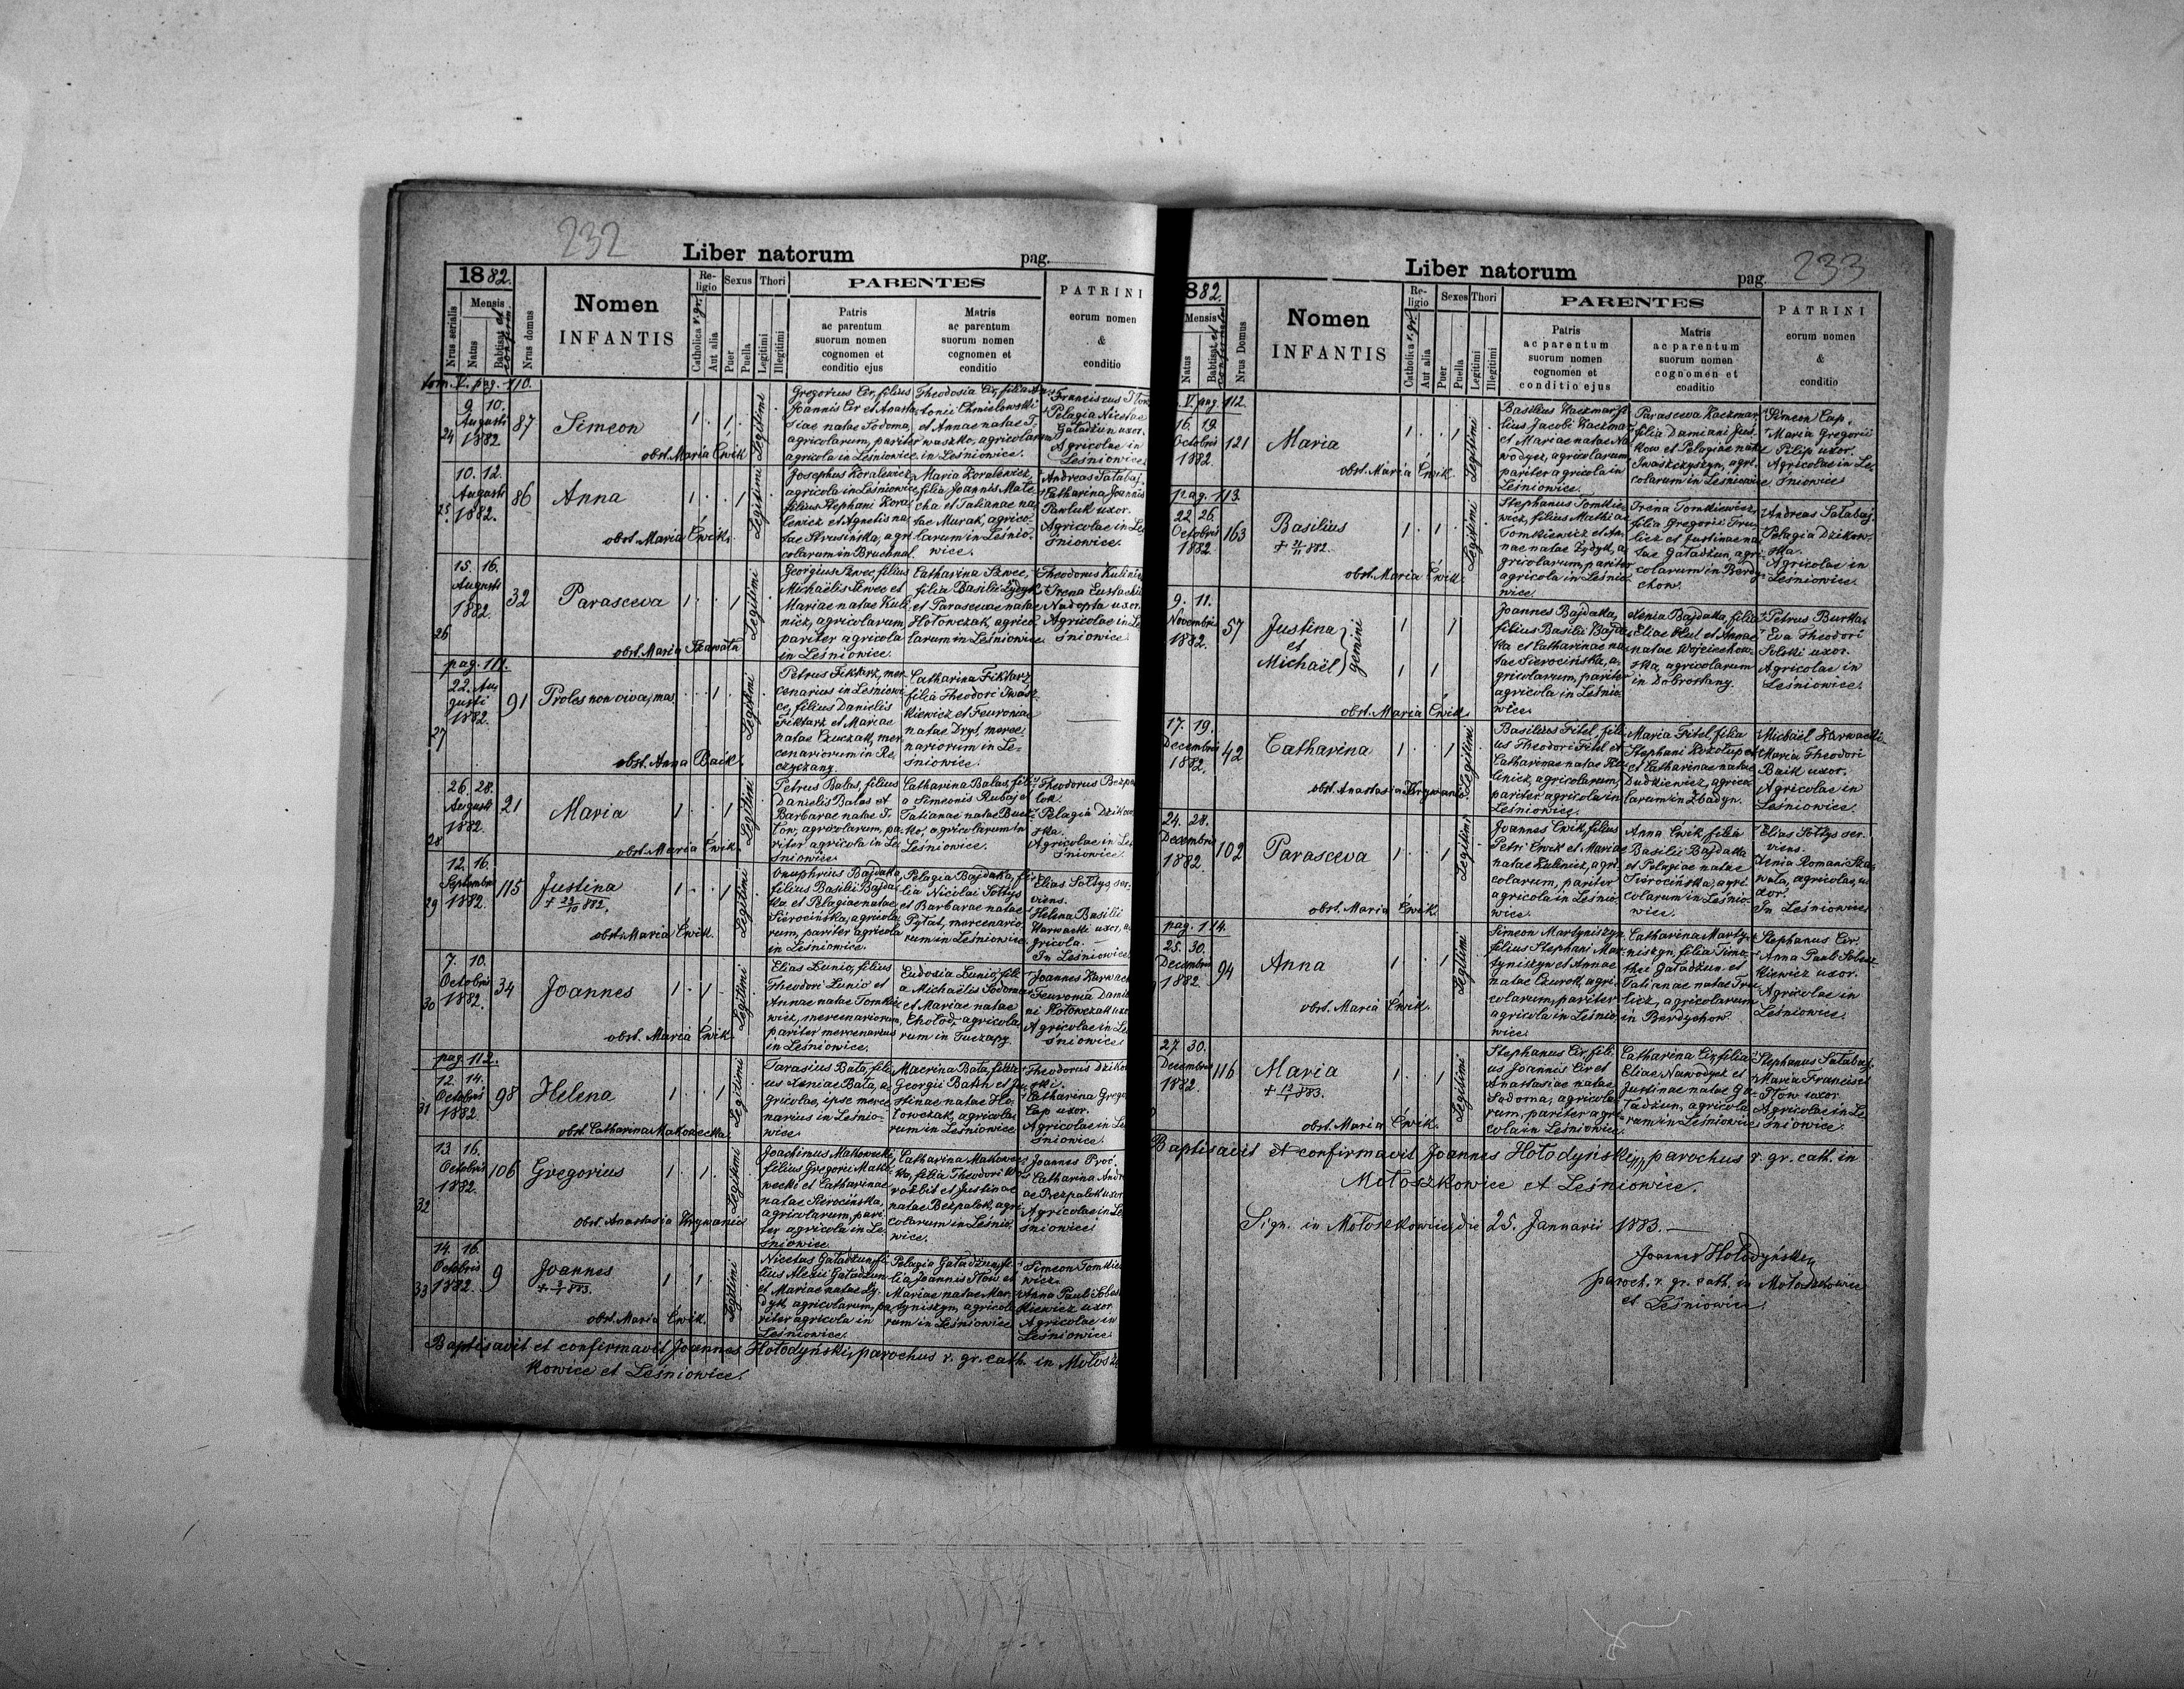 232
Liber natorum
pag.
1882.
Nrus serialis
Mensis
Natus
Babtisat et confirm.
Nrus domus
Nomen
INFANTIS
Re-
ligio
Catholica r. gr.
Aut alia
Sexus
Puer
Puella
Thori
Legitimi
Illegitimi
PARENTES
Patris
ac parentum
suorum nomen
cognomen et
conditio ejus
Matris
ac parentum
suorum nomen
cognomen et
conditio
PATRINI
eorum nomen
&
conditio
tom. V. pag. 110.
24
9. 10.
Augusti
1882
87
Simeon
obst. Maria Ćwik
Legitimi
Gregorius Cir, filius
Joannis Cir et Anasta
siae natae Sodoma,
agricolarum, pariter
agricola in Leśniowice.
Theodosia Cir, filia An
tonii Chmielowski
et Annae natae I
waszko, agricolarum
in Leśniowice.
Franciscus
Pelagia Nicetae
Gaładżun uxor.
Agricolae in
Leśniowice
25
10. 12.
Augusti
1882.
86
Anna
obst. Maria Ćwik.
Legitimi
Josephus Koralewicz
agricola in Leśniowice
filius Stephani Kora
lewicz et Agnetis na
tae Strusińska, agri
colarum in Bruchnal.
Maria Koralewicz,
filia Joannis Mate
cha et Tatianae na
tae Murak, agrico
larum in Leśnio
wice.
Andreas Sałabaj.
Catharina Joannis
Pawluk uxor.
Agricolae in Le
śniowice.
26
15. 16.
Augusti
1882.
32
Parasceva
obst. Maria Skawała
Legitimi
Georgius Szwec, filius
Michaëlis Szwec et
Mariae natae Kuli
nicz, agricolarum
pariter agricola
in Leśniowice.
Catharina Szwec,
filia Basilii Żydyk
et Parascevae natae
Hołowczak, agrico
larum in Leśniowice.
Theodorus Kulinicz
Irena Eustachii
Nadopta uxor.
Agricolae in Le
śniowice
pag. 111.
27
22. Au
gusti
1882.
91
Proles non viva, mas.
obst. Anna Baik.
Legitimi
Petrus Fiktarz, mer
cenarius in Leśniowi
ce, filius Danielis
Fiktarz et Mariae
natae Czuczak, mer
cenariorum in Re
czyczany.
Catharina Fiktarz,
filia Theodori Iwasz
kiewicz et Feuroniae
natae Dryś, merce
nariorum in Le-
śniowice.
28
26. 28.
Augusti
1882.
21
Maria
obst. Maria Ćwik.
Legitimi
Petrus Balas, filius
Danielis Balas et
Barbarae natae I
Tow, agricolarum, pa
riter agricola in Le
śniowice.
Catharina Balas, fili
a Simeonis Rubaj et
Tatianae natae
agricolarum in
Leśniowice.
Theodorus Bezpa
lok.
Pelagia Dzikow
ska.
Agricolae in Le
śniowice.
29
12. 16.
Septembris
1882.
115
Justina
+ 23/10 882.
obst. Maria Ćwik.
Legitimi
Onuphrius Bajdała,
filius Basilii Bajda
ła et Pelagiae natae
Sierocińska, agricola
rum, pariter agricola
in Leśniowice.
Pelagia Bajdała, fi
lia Nicolai Sołtys
et Barbarae natae
Pytat, mercenario
rum in Leśniowice.
Elias Sołtys ser
viens.
Helena Basilii
Karwacki uxor, a
gricola.
In Leśniowice
30
7. 10.
Octobris
1882.
34
Joannes
obst. Maria Ćwik.
Legitimi
Elias Łunio, filius
Theodori Łunio et
Annae natae Tomkie
wicz, mercenariorum,
pariter mercenarius
in Leśniowice.
Eudoxia Łunio, fili
a Michaëlis Sodoma
et Mariae natae
Chołod, agricola
rum in Tuczapy.
Joannes Karwacki
Feuronia Dami
ni Hołowczak uxor
Agricolae in Le
śniowice
pag. 112.
31
12. 14.
Octobris
1882.
98
Helena
obst. Catharina Makowecka.
Legitimi
Tarasius Bała, fili
us Xeniae Bała, a
gricolae, ipse merce
narius in Leśnio-
wice
Macrina Bała, filia
Georgii Bath et Ju
stinae natae Ho
łowczak, agricola
rum in Leśniowice
Theodorus Dziko
wski.
Catharina Grego
Cap uxor.
Agricolae in Le
śniowice.
32
13. 16.
Octobris
1882.
106
Gregorius
obst. Anastasia Krywania
Legitimi
Joachimus Makowecki,
filius Gregorii Mako
wecki et Catharinae
natae Sierocińska,
agricolarum, pari
ter agricola in Le
śniowice
Catharina Makowec
ka, filia Theodori
et Justinae
natae Bezpalok, agri
colarum in Leśnio
wice.
Joannes Proć.
Catharina Andre
ae Bezpalok uxor
Agricolae in Le
śniowice
33
14. 16.
Octobris
1882.
9
Joannes
obst. Maria Ćwik.
Legitimi
Nicetas Gaładżun, fi
lius Alexii Gaładżun
et Mariae natae Ży
dyk agricolarum, pa
riter agricola in
Leśniowice.
Pelagia Gaładżun, fi
lia Joannis Iłow et
Mariae natae Mar
tyniszyn, agricola
rum in Leśniowice
Simeon Tomkie
wicz.
Anna Pauli Sobasz
kiewicz uxor.
Agricolae in
Leśniowice
Baptisavit et confirmavit Joannes Hołodyński, parochus r. gr. cath. in Mołosz
kowice et Leśniowice.
233
Liber natorum
pag.
882.
Mensis
Natus
Babtisat et confirmatus
Nrus Domus
Nomen
INFANTIS
Re-
ligio
Catholica r. gr.
Aut alia
Sexes
Puer
Puella
Thori
Legitimi
Illegitimi
PARENTES
Patris
ac parentum
suorum nomen
cognomen et
conditio ejus
Matris
ac parentum
suorum nomen
cognomen et
conditio
PATRINI
eorum nomen
&
conditio
V. pag. 112.
16. 19.
Octobris
1882.
121
Maria
obst. Maria Ćwik.
Legitimi
Basilius Kaczmar, fi
lius Jacobi Kaczmar
et Mariae natae Na
wodycz, agricolarum,
pariter agricola in
Leśniowice.
Parasceva Kaczmar
filia Damiani Jus
kow et Pelagiae natae
Iwaszczyszyn, agri
colarum in Leśniowice
Simeon Cap.
Maria Gregorii
Pilip uxor.
Agricolae in Le
śniowice
pag. 113.
22. 26.
Octobris
1882.
163
Basilius
+ 21/11 882.
obst. Maria Ćwik.
Legitimi
Stephanus Tomkie
wicz, filius Mathiae
Tomkiewicz et An
nae natae Żydyk, a
gricolarum, pariter
agricola in Leśnio
wice.
Irena Tomkiewicz,
filia Gregorii Fru
licz et Justinae na
tae Gaładżun, agri
colarum in Berdy
chow.
Andreas Sałabaj.
Pelagia Dzikow
ska.
Agricolae in
Leśniowice.
9. 11.
Novembris
1882.
57
Justina
et
Michaël
gemini
obst. Maria Ćwik.
Joannes Bajdała,
filius Basilii Bajda
ła et Catharinae na
tae Sierocińska, a
gricolarum, pariter
agricola in Leśnio
wice.
Xenia Bajdała, filia
Eliae Hul et Annae
natae Wojciechow
ska, agricolarum
in Dobrostany.
Petrus Burka.
Eva Theodori
Solski uxor.
Agricolae in
Leśniowice.
17. 19.
Decembris
1882.
42
Catharina
obst. Anastasia Krywania
Legitimi
Basilius Fitel, fili
us Theodori Fitel et
Catharinae natae Ku
linicz, agricolarum,
pariter agricola in
Leśniowice.
Maria Fitel, filia
Stephani
et Catharinae natae
Dudkiewicz, agrico
larum in Zbadyn.
Michaël Karwacki.
Maria Theodori
Baik uxor.
Agricolae in
Leśniowice.
24. 28.
Decembris
1882.
102
Parasceva
obst. Maria Ćwik.
Legitimi
Joannes Ćwik, filius
Petri Ćwik et Mariae
natae Kulinicz, agri
colarum, pariter
agricola in Leśnio
wice.
Anna Ćwik, filia
Basilii Bajdała
et Pelagiae natae
Sierocińska, agri
colarum in Leśnio
wice.
Elias Sołtys ser
viens.
Xenia Romani Ska
wała, agricolae, u
xor.
In Leśniowice
pag. 114.
25. 30.
Decembris
1882.
94
Anna
obst. Maria Ćwik.
Legitimi
Simeon Martyniszyn
filius Stephani Mar
tyniszyn et Annae
natae Czurok, agri
colarum, pariter
agricola in Leśnio
wice.
Catharina Marty
niszyn, filia Timo
thei Gaładżun et
Tatianae natae Fru
licz, agricolarum
in Berdychow.
Stephanus Cir.
Anna Pauli Sobasz
kiewicz uxor.
Agricolae in
Leśniowice.
27. 30.
Decembris
1882.
116
Maria
obst. Maria Ćwik.
Legitimi
Stephanus Cir, fili
us Joannis Cir et
Anastasiae natae
Sodoma, agricola
rum, pariter agri
cola in Leśniowice.
Catharina Cir, filia
Eliae Nawodycz et
Justinae natae Ga
ładżun, agricola
rum in Leśniowice
Stephanus Sałabaj.
Maria Francisci
Iłow uxor.
Agricolae in Le
śniowice.
Baptisavit et confirmavit Joannes Hołodyński, parochus r. gr. cath. in
Mołoszkowice et Leśniowice.
Sign. in Mołoszkowice, die 25. Januarii 1883.
Joannes Hołodyński
paroch. r. gr. cath. in Mołoszkowice
et Leśniowice.